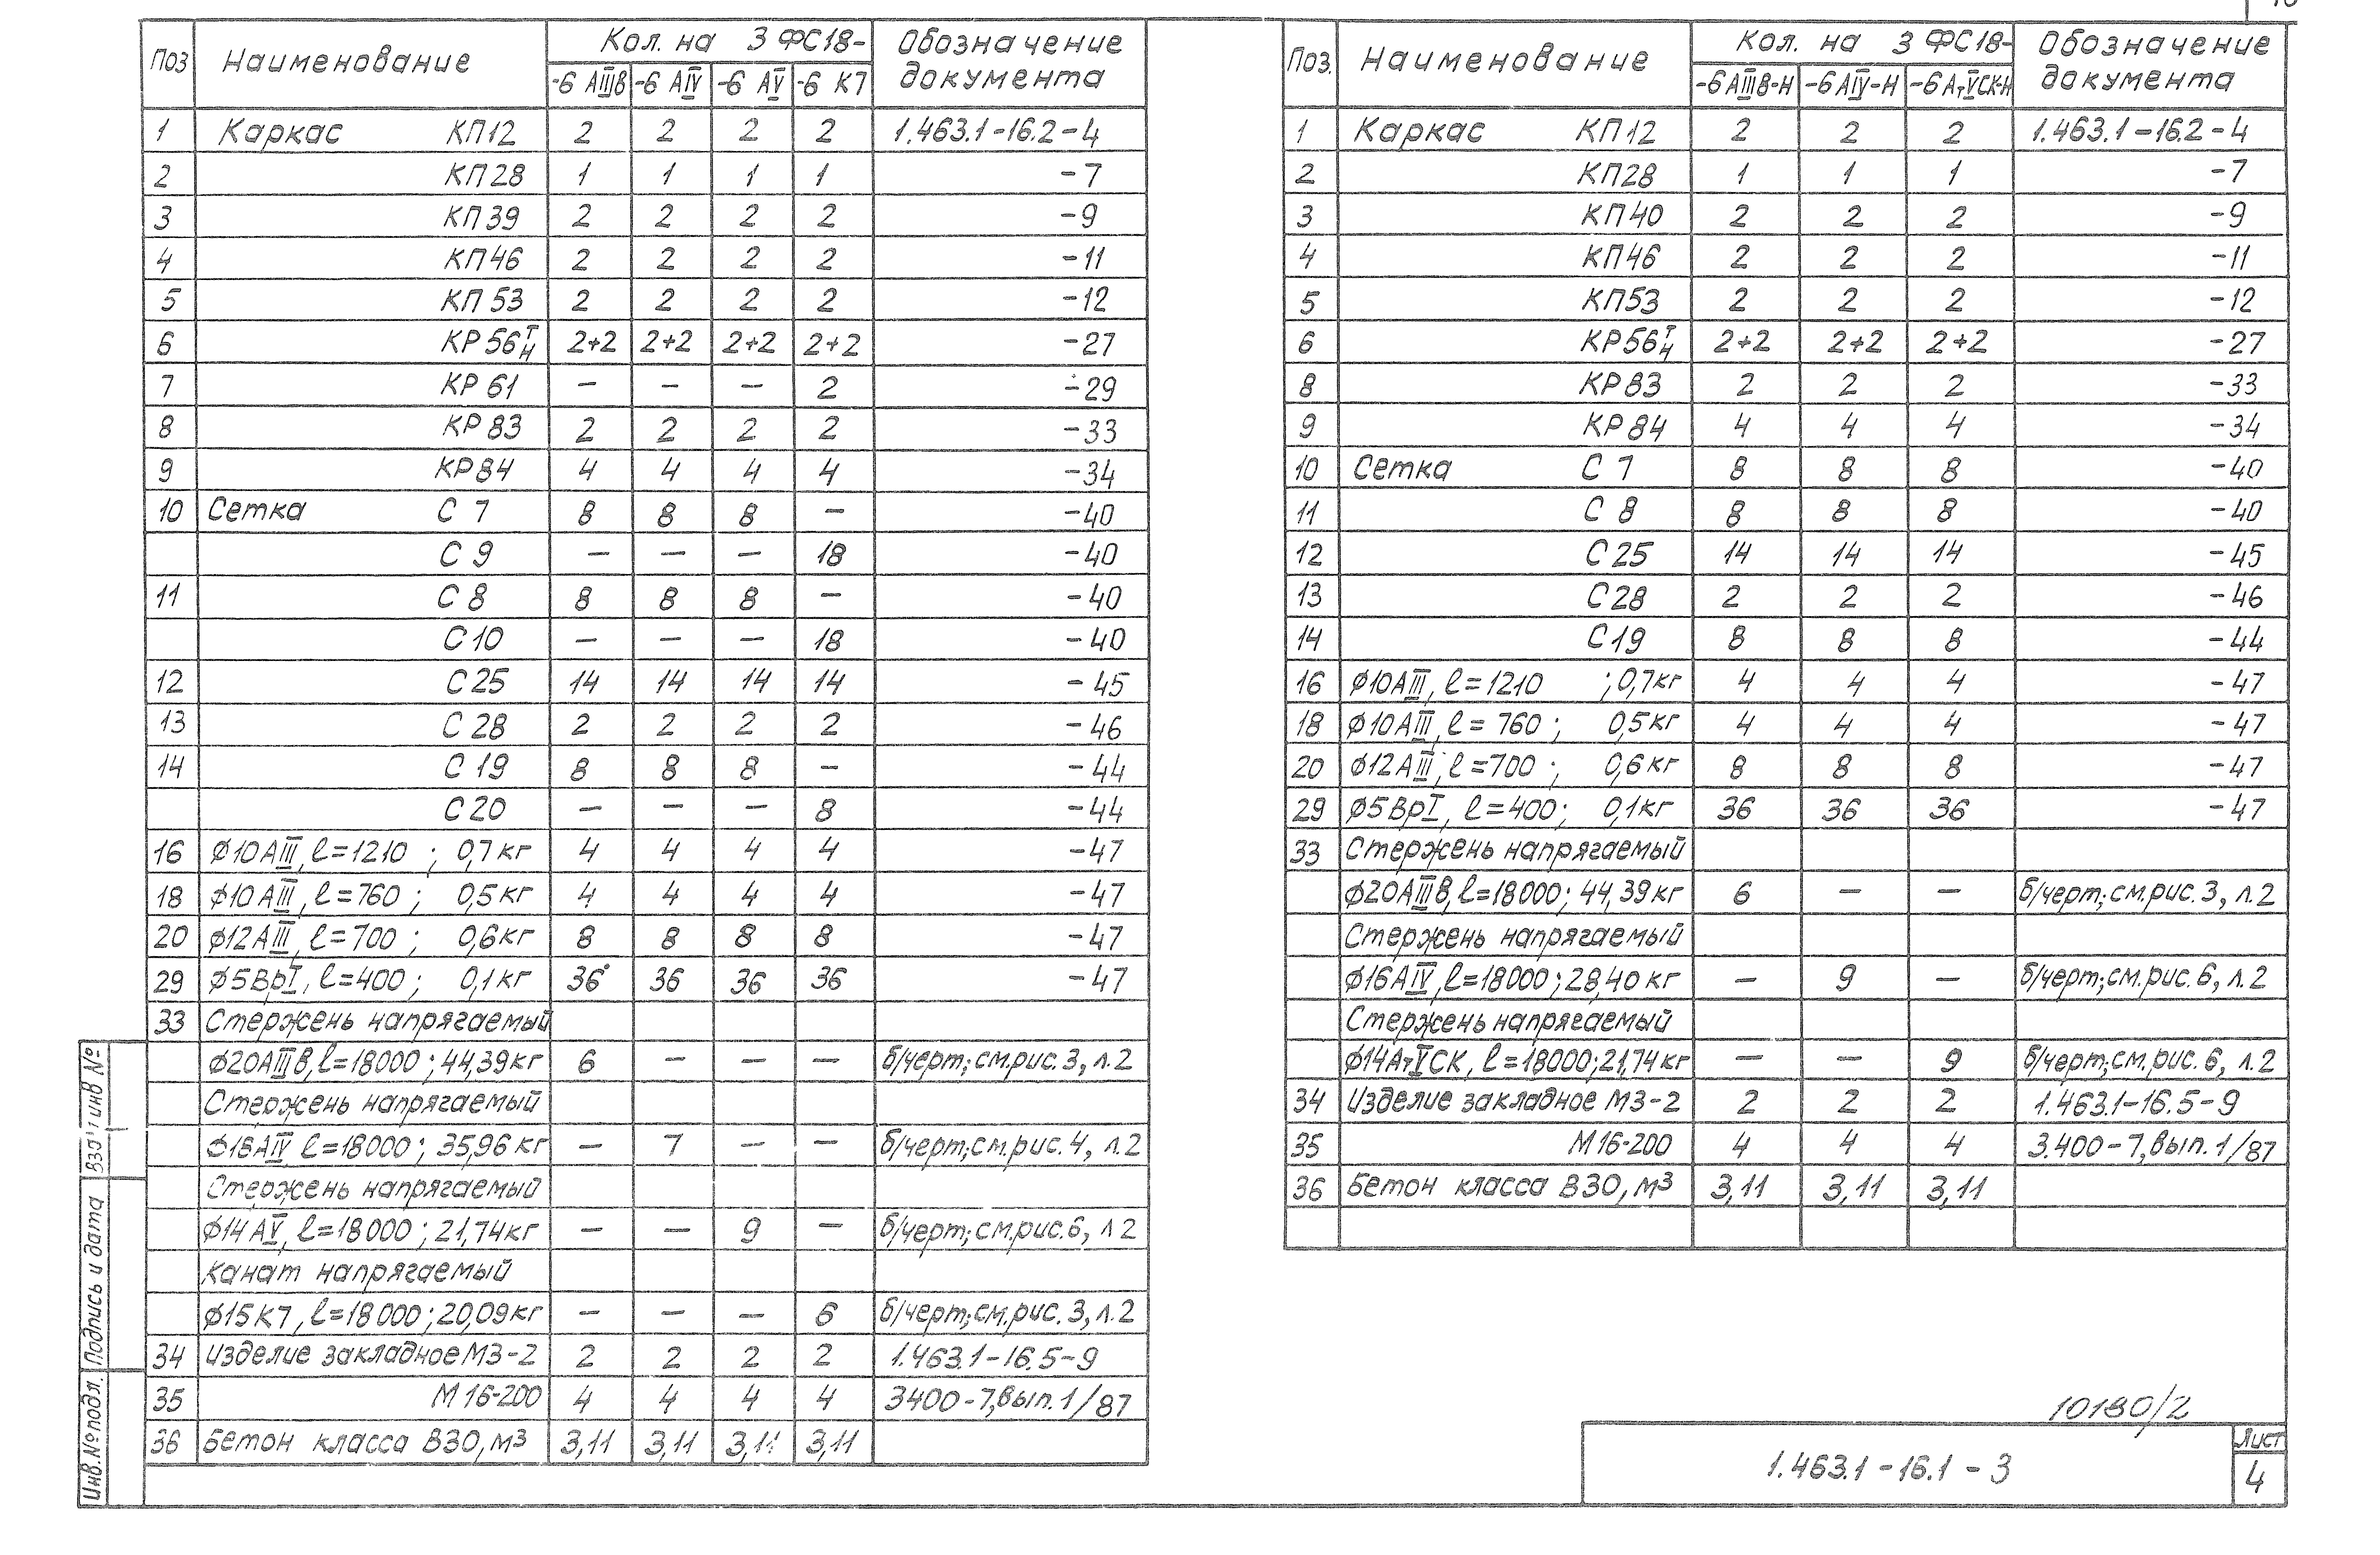 Поз Наименование Кол. на 3ФС18- Обозначение документа
-6 АIIIВ -6 АIV -6 АV -6 К7
1 Каркас КП12 2 2 2 2 1.463.1-16.2-4
2 КП28 1 1 1 1 -7
3 КП39 2 2 2 2 -9
4 КП46 2 2 2 2 -11
5 КП53 2 2 2 2 -12
6 КР56 Т/Н 2+2 2+2 2+2 2+2 -27
7 КР61 — — — 2 -29
8 КР83 2 2 2 2 -33
9 КР84 4 4 4 4 -34
10 Сетка С7 8 8 8 — -40
С9 — — — 18 -40
11 С8 8 8 8 — -40
С10 — — — 18 -40
12 С25 14 14 14 14 -45
13 С28 2 2 2 2 -46
14 С19 8 8 8 — -44
С20 — — — 8 -44
16 ⌀10АIII, ℓ=1210 ; 0,7кг 4 4 4 4 -47
18 ⌀10АIII, ℓ=760 ; 0,5кг 4 4 4 4 -47
20 ⌀12АIII, ℓ=700 ; 0,6кг 8 8 8 8 -47
29 ⌀5ВрI, ℓ=400 ; 0,1кг 36 36 36 36 -47
33 Стержень напрягаемый
⌀20АIIIВ, ℓ=18000 ; 44,39кг 6 — — — б/черт; см.рис.3, л.2
Стержень напрягаемый
⌀18АIV ℓ=18000 ; 35,96кг — 7 — — б/черт; см.рис.4, л.2
Стержень напрягаемый
⌀14АV, ℓ=18000 ; 21,74кг — — 9 — б/черт; см.рис.6, л 2
Канат напрягаемый
⌀15К7, ℓ=18000 ; 20,09кг — — — 6 б/черт; см.рис.3, л.2
34 Изделие закладное МЗ-2 2 2 2 2 1.463.1-16.5-9
35 М16-200 4 4 4 4 3400-7, вып.1/87
36 Бетон класса В30, м3 3,11 3,11 3,11 3,11
Поз. Наименование Кол. на 3ФС18- Обозначение документа
-6АIIIВ-Н -6АIV-Н -6АтVСК-Н
1 Каркас КП12 2 2 2 1.463.1-16.2-4
2 КП28 1 1 1 -7
3 КП40 2 2 2 -9
4 КП46 2 2 2 -11
5 КП53 2 2 2 -12
6 КР56 Т/Н 2+2 2+2 2+2 -27
8 КР83 2 2 2 -33
9 КР84 4 4 4 -34
10 Сетка С7 8 8 8 -40
11 С8 8 8 8 -40
12 С25 14 14 14 -45
13 С28 2 2 2 -46
14 С19 8 8 8 -44
16 ⌀10АIII, ℓ=1210 ; 0,7кг 4 4 4 -47
18 ⌀10АIII, ℓ=760 ; 0,5кг 4 4 4 -47
20 ⌀12АIII, ℓ=700 ; 0,6кг 8 8 8 -47
29 ⌀5ВрI, ℓ=400 ; 0,1кг 36 36 36 -47
33 Стержень напрягаемый
⌀20АIIIВ, ℓ=18000 ; 44,39кг 6 — — б/черт; см.рис.3, л.2
Стержень напрягаемый
⌀16АIV, ℓ=18000 ; 28,40кг — 9 — б/черт; см.рис.6, л.2
Стержень напрягаемый
⌀14АтVСК, ℓ=18000; 21,74кг — — 9 б/черт; см.рис.6, л.2
34 Изделие закладное МЗ-2 2 2 2 1.463.1-16.5-9
35 М16-200 4 4 4 3.400-7, вып.1/87
36 Бетон класса В30, м3 3,11 3,11 3,11
Инв.№подл. Подпись и дата инв №
10180/2
1.463.1-16.1-3
Лист
4